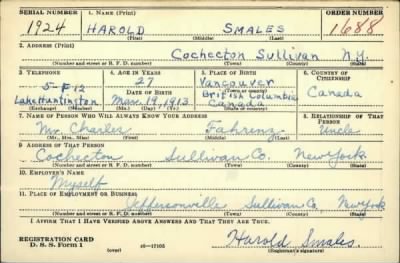 SERIAL NUMBER 1. NAME (Print) ORDER NUMBER
1924 HAROLD SMALES 1688
(First) (Middle) (Last)
2. ADDRESS (Print)
Cochecton Sullivan N.Y.
(Number and street or R. F. D. number) (Town) (County) (State)
3. TELEPHONE 4. AGE IN YEARS 5. PLACE OF BIRTH 6. COUNTRY OF CITIZENSHIP
5-F-12 27 Vancouver
DATE OF BIRTH British Columbia Canada
Lake Huntington Mar. 19, 1913 Canada
(Exchange) (Number) (Mo.) (Day) (Yr.) (State or country)
7. NAME OF PERSON WHO WILL ALWAYS KNOW YOUR ADDRESS 8. RELATIONSHIP OF THAT PERSON
Mr. Charles Fahrenz Uncle
(Mr., Mrs., Miss) (First) (Middle) (Last)
9. ADDRESS OF THAT PERSON
Cochecton Sullivan Co. New York
(Number and street or R. F. D. number) (Town) (County) (State)
10. EMPLOYER'S NAME
Myself
11. PLACE OF EMPLOYMENT OR BUSINESS
Jeffersonville Sullivan Co. New York
(Number and street or R. F. D. number) (Town) (County) (State)
I AFFIRM THAT I HAVE VERIFIED ABOVE ANSWERS AND THAT THEY ARE TRUE.
REGISTRATION CARD
D. S. S. Form 1 (over) 16—17105 Harold Smales
(Registrant's signature)